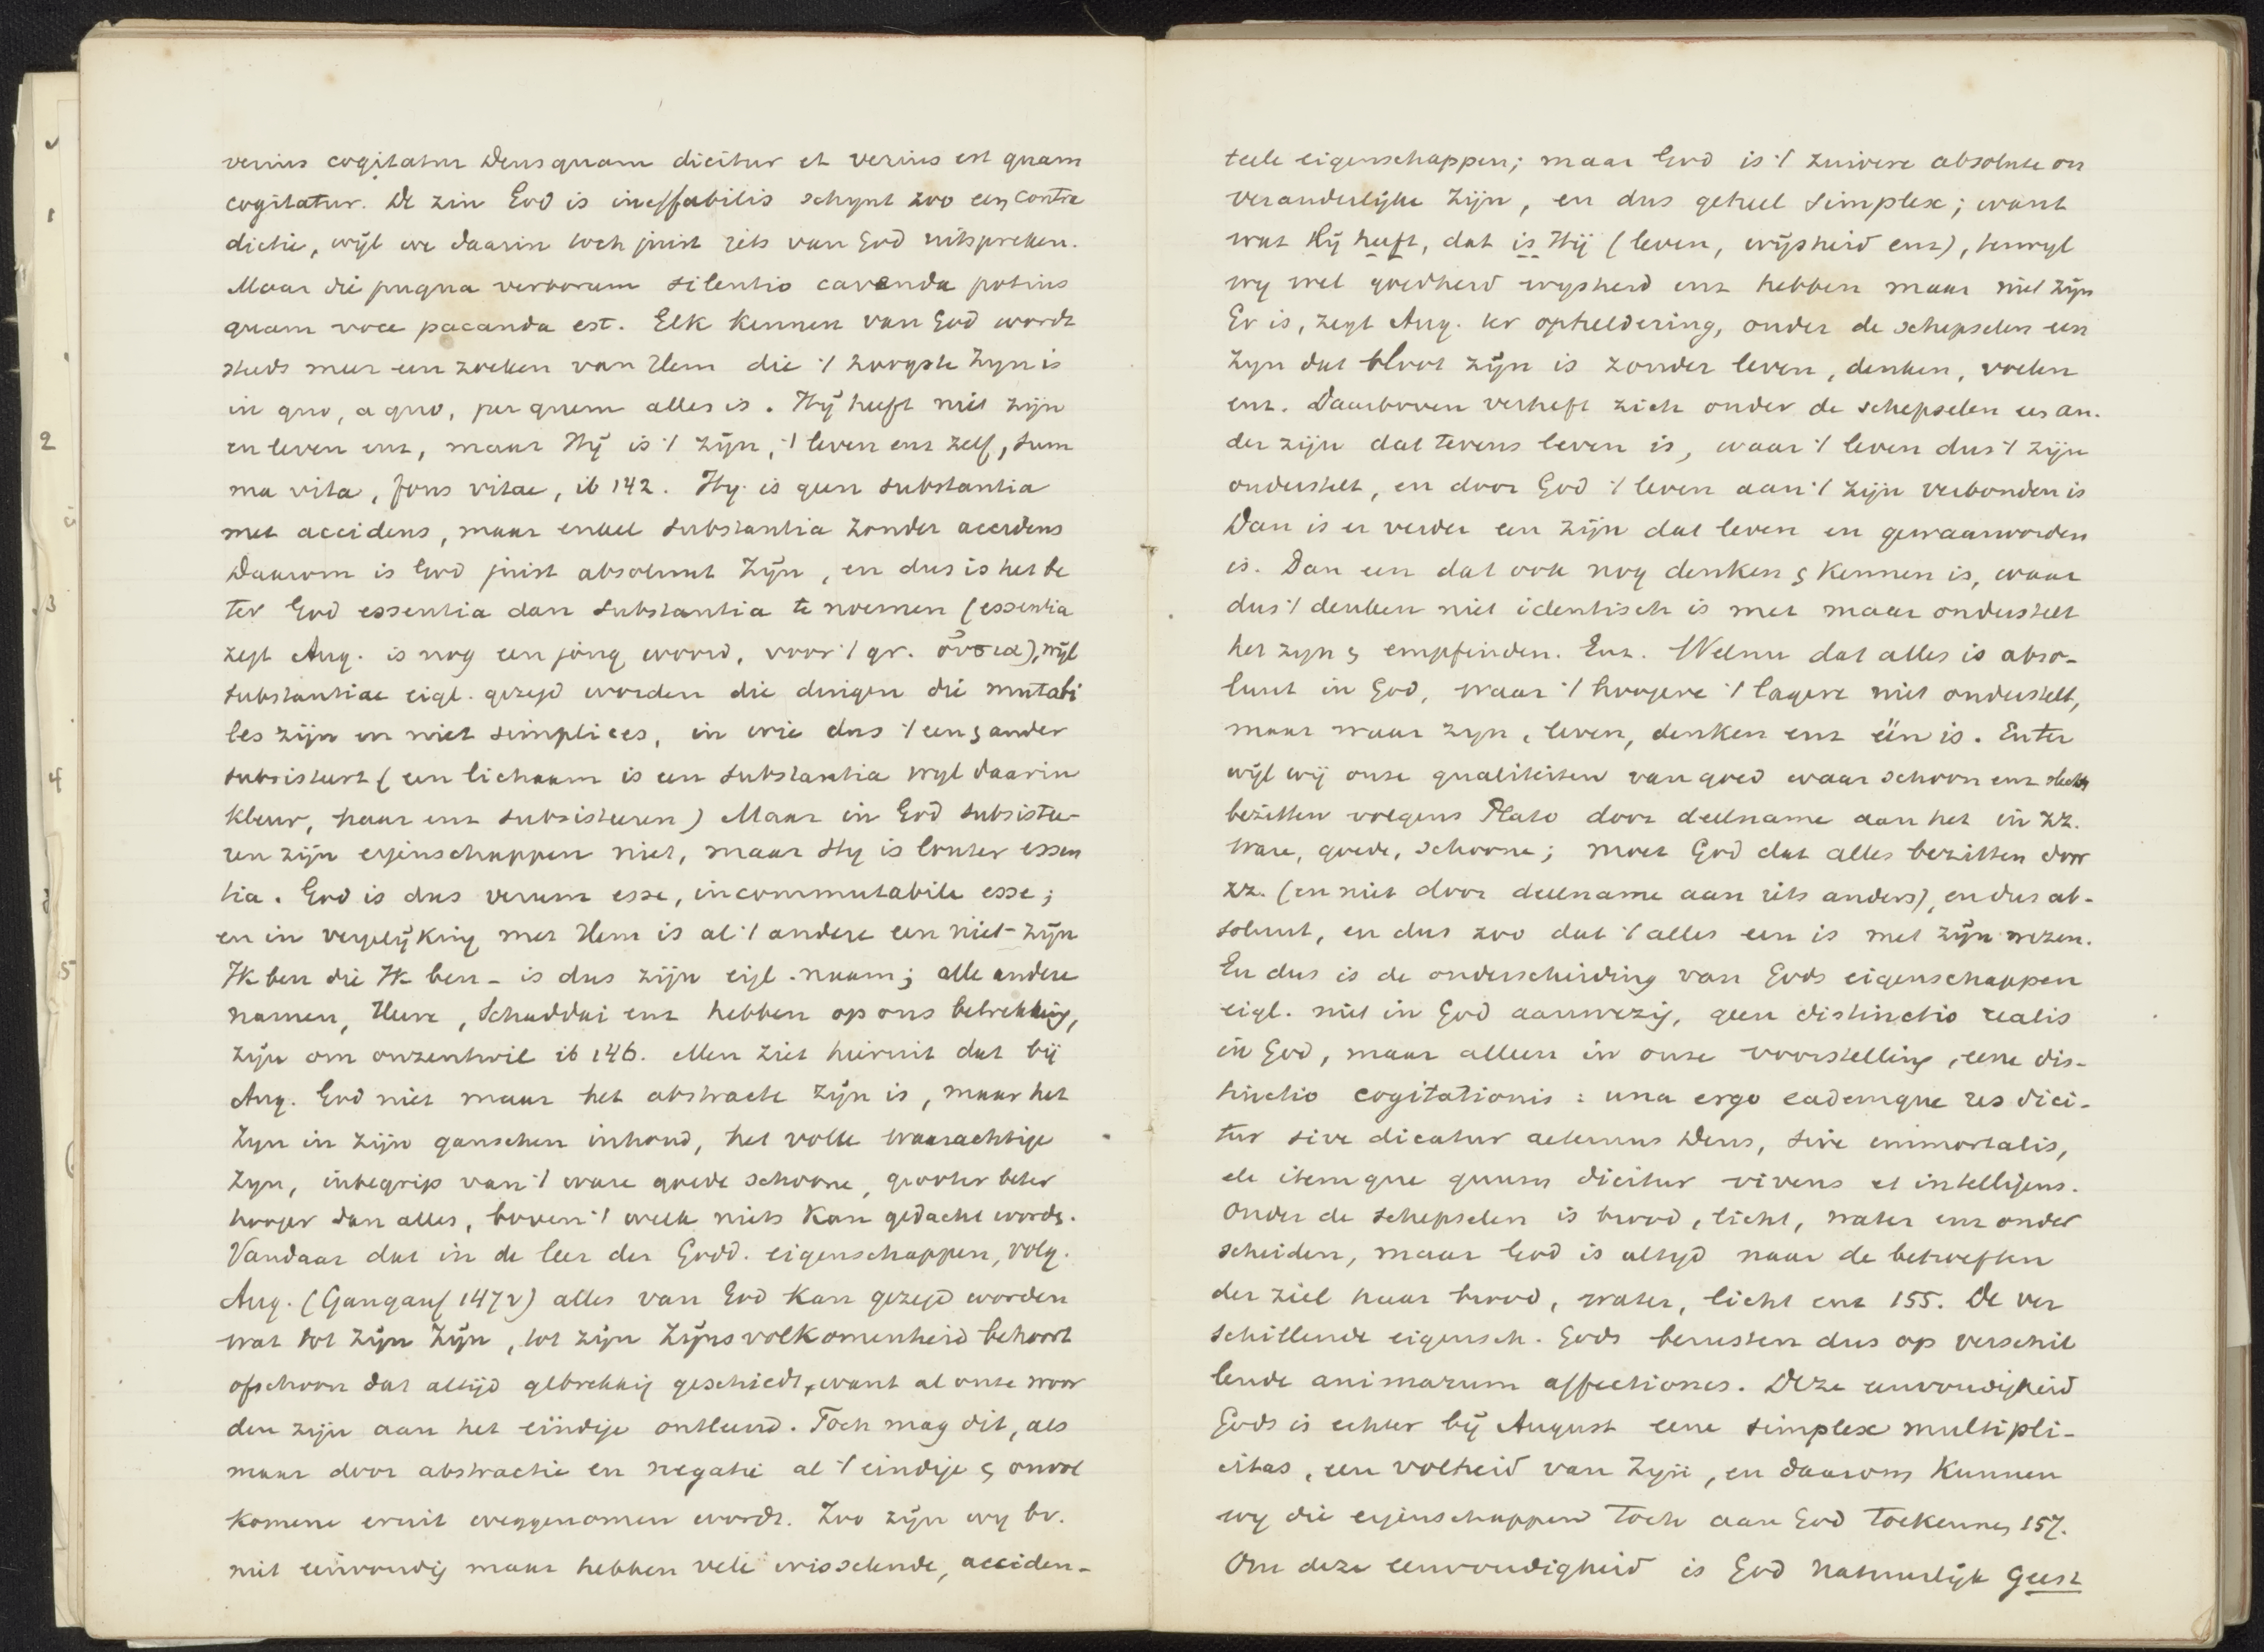 verius cogitatur Deus quam dicitur et verius est quam
cogitatur. De zin God is ineffabilis schynt zoo een contra
dictie, wijl we daarin toch juist iets van God uitspreken.
Maar die pugna verborum silentio cavenda potius
quam voce pacanda est. Elk kennen van God wordt
steeds meer een zoeken van Hem die 't hoogste Zyn is
in quo, a quo, per quem alles is. Hij heeft niet zijn
en leven enz, maar Hij is 't zijn, 't leven enz zelf, sum
ma vita, fons vitae, ib 142. Hy is geen substantia
met accidens, maar enkel substantia zonder accidens
Daarom is God juist absoluut Zijn, en dus is het be
ter God essentia dan substantia te noemen (essentia
zegt Aug. is nog een jong woord, voor 't gr. οὐσια), wijl
substantiae eigl. gezegd worden die dingen die mutabi
les zijn en niet simplices, in wie dus 't een & ander
subsisteert (een lichaam is een substantia wyl daarin
kleur, haar enz subsisteeren) Maar in God subsistee-
ren zijn eigenschappen niet, maar Hy is louter essen
tia. God is dus verum esse, incommutabile esse;
en in vergelijking met Hem is al 't andere een niet-zijn
Ik ben die Ik ben - is dus zijn eigl. naam; alle andere
namen, Heere, Schaddai enz hebben op ons betrekking,
zijn om onzentwil ib 146. Men ziet hieruit dat bij
Aug. God niet maar het abstracte Zijn is, maar het
Zyn in zijn ganschen inhoud, het volle waarachtige
Zyn, inbegrip van 't ware goede schoone, grooter beter
hooger dan alles, boven 't welk niets kan gedacht word.
Vandaar dat in de leer der Godd. eigenschappen, volg.
Aug. (Gangauf 147v) alles van God kan gezegd worden
wat tot Zijn Zijn, tot zijn Zijnsvolkomenheid behoort
ofschoon dat altijd gebrekkig geschiedt, want al onze woor
den zijn aan het eindige ontleend. Toch mag dit, als
maar door abstractie en negatie al 't eindige & onvol
komene eruit weggenomen wordt. Zoo zijn wy bv.
niet eenvoudig maar hebben vele wisselende, acciden-
teele eigenschappen; maar God is 't zuivere absolute on
veranderlijke Zijn, en dus geheel simplex; want
wat Hij heeft, dat is Hij (leven, wijsheid enz), terwyl
wy wel goedheid wysheid enz hebben maar niet zijn
Er is, zegt Aug. ter opheldering, onder de schepselen een
Zyn dat bloot zijn is zonder leven, denken, voelen
enz. Daarboven verheft zich onder de schepselen een an-
der zijn dat tevens leven is, waar 't leven dus 't zijn
onderstelt, en door God 't leven aan 't zijn verbonden is
Dan is er verder een zijn dat leven en gewaarworden
is. Dan een dat ook nog denken & kennen is, waar
dus 't denken niet identisch is met maar onderstelt
het zyn & empfinden. Enz. Welnu dat alles is abso-
luut in God, waar 't hoogere 't lagere niet onderstelt,
maar waar zyn, leven, denken enz één is. En ten
wijl wij onze qualiteiten van goed waar schoon enz slechts
bezitten volgens Plato door deelname aan het in zz.
ware, goede, schoone; moet God dat alles bezitten door
zz. (en niet door deelname aan iets anders), en dus ab-
soluut, en dus zoo dat 't alles een is met zijn wezen.
En dus is de onderscheiding van Gods eigenschappen
eigl. niet in God aanwezig, geen distinctio realis
in God, maar alleen in onze voorstelling, eene dis-
tinctio cogitationis: una ergo eademque res dici-
tur sive dicatur aeternus Deus, sive immortalis,
itemque quum dicitur vivens et intelligens.
Onder de schepselen is brood, licht, water enz onder
scheiden, maar God is altyd naar de behoeften
der ziel haar brood, water, licht enz 155. De ver
schillende eigensch. Gods berusten dus op verschil
lende animarum affectiones. Deze eenvoudigheid
Gods is echter bij August eene simplex multipli-
citas, een volheid van Zijn, en daarom kunnen
wy die eigenschappen toch aan God toekennen 157.
Om deze eenvoudigheid is God natuurlijk Geest